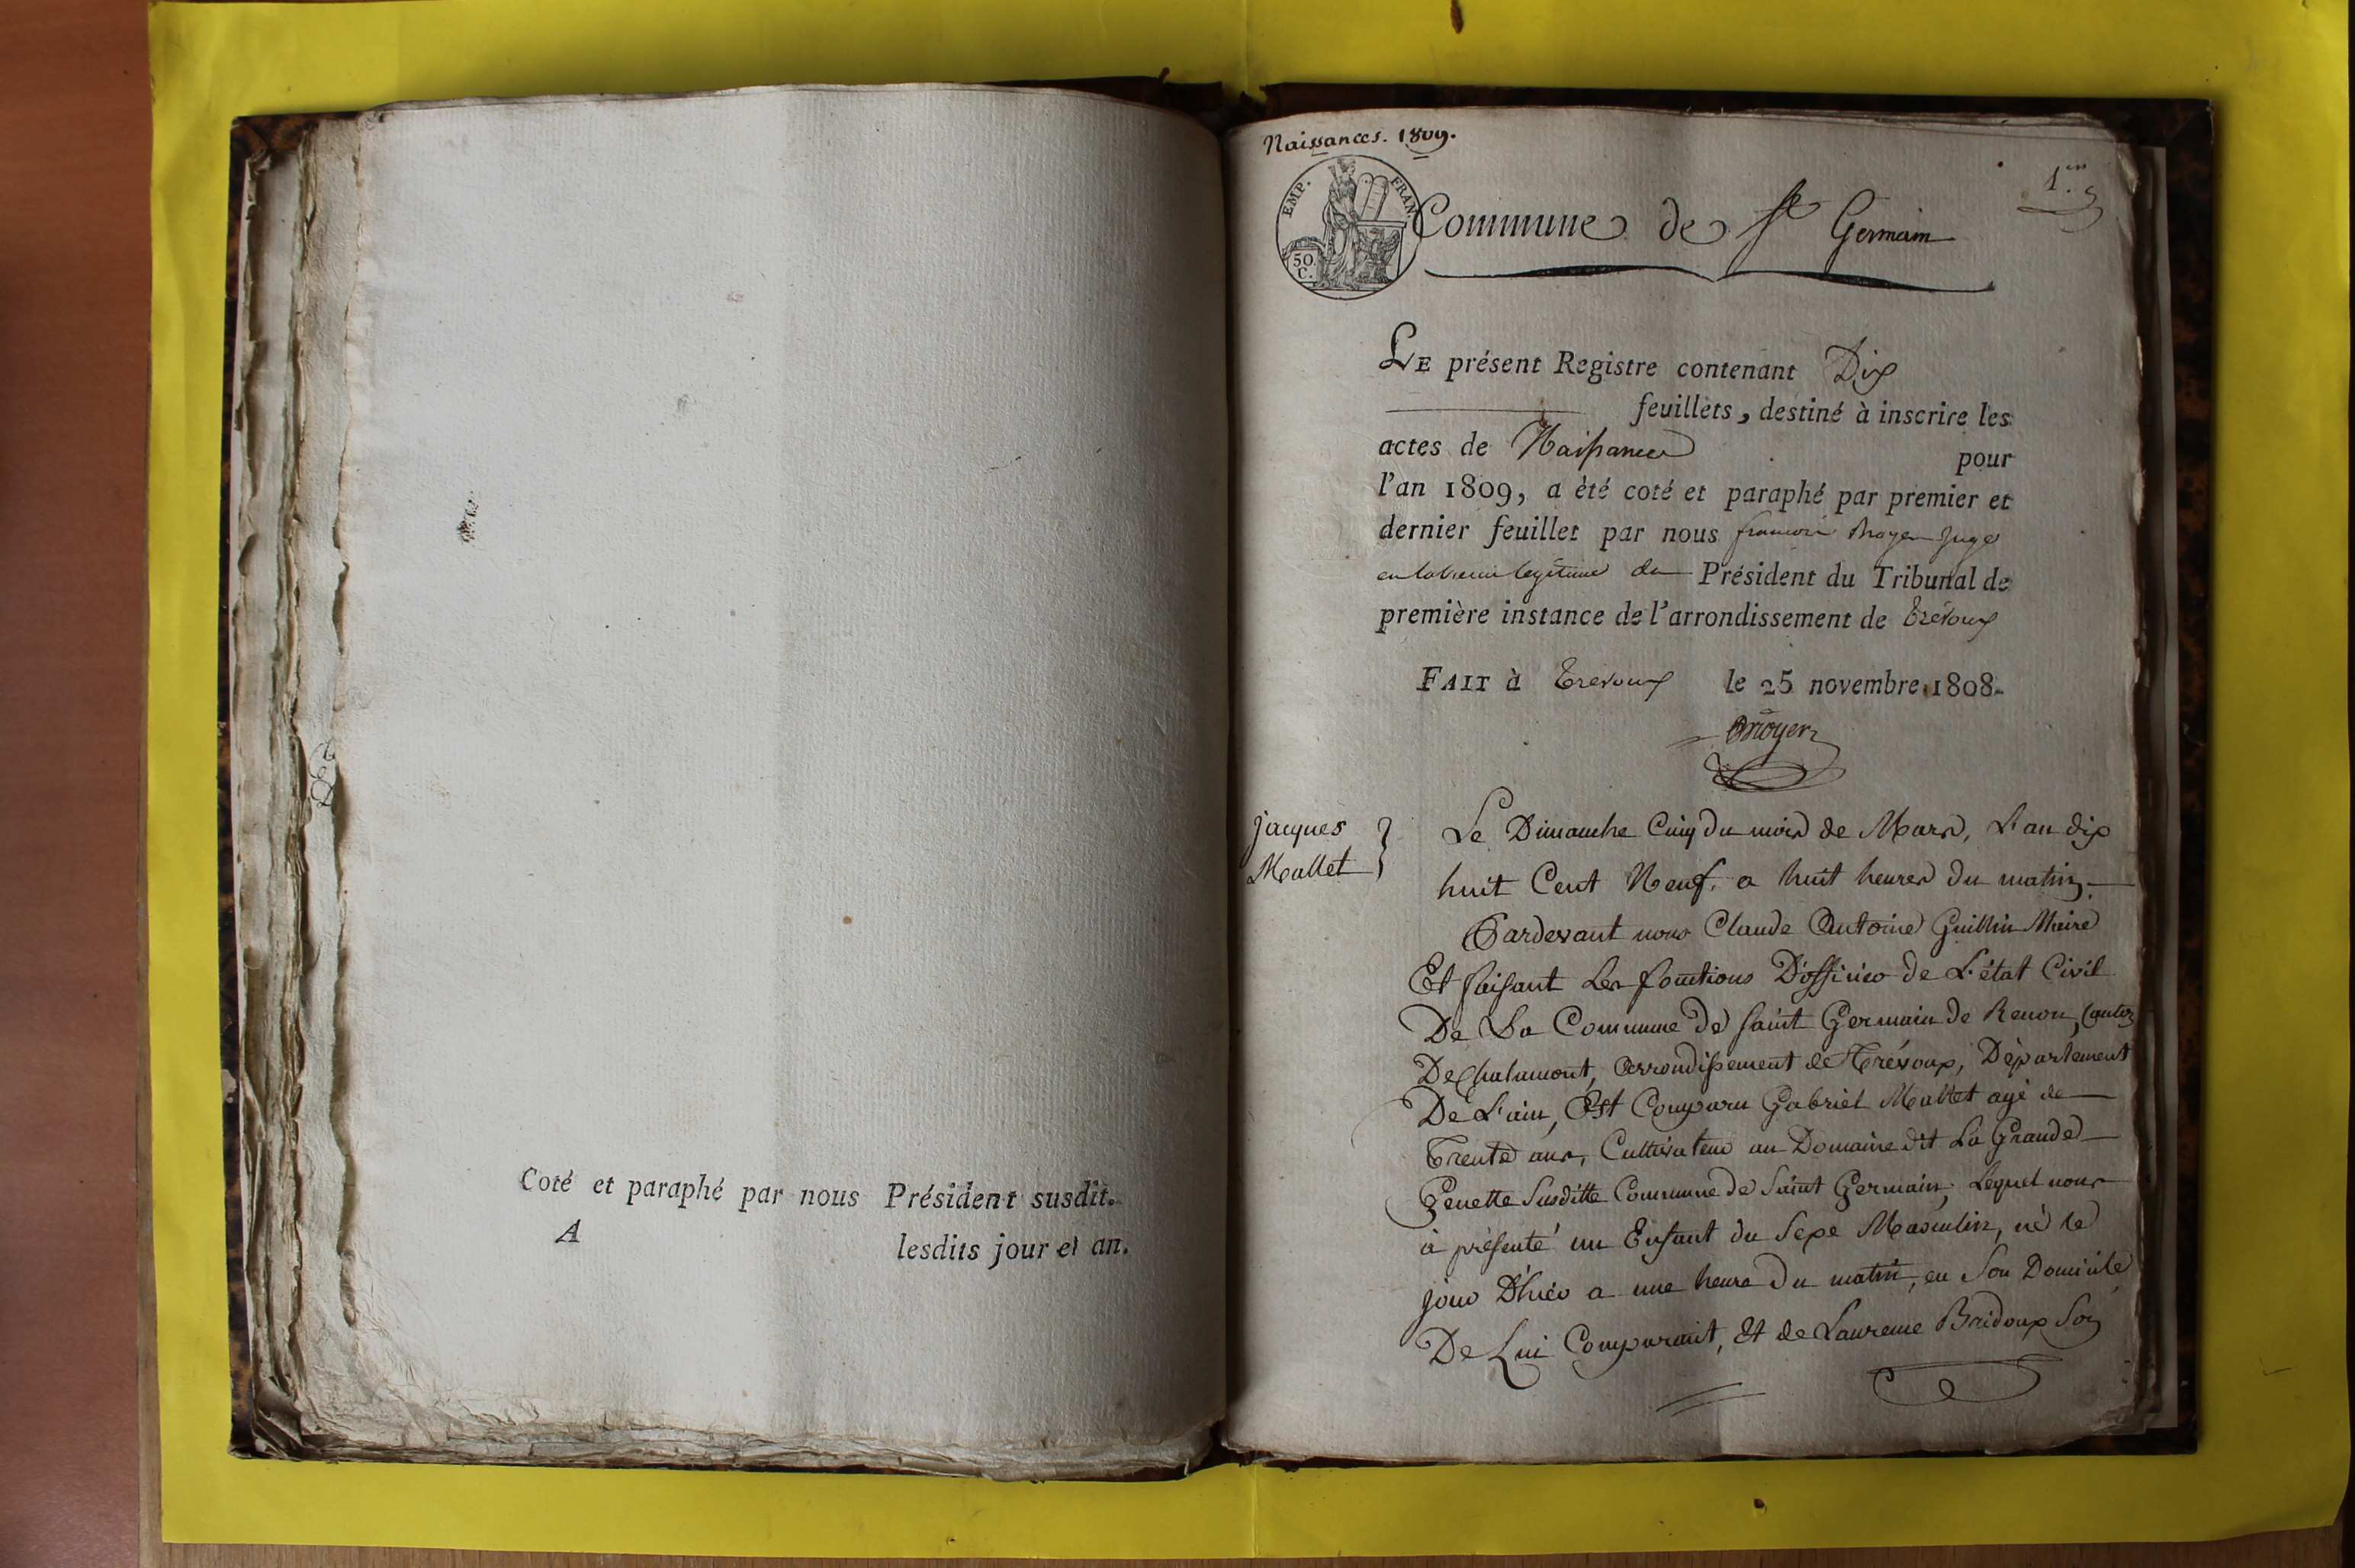 Coté et paraphé par nous Président susdit.
A lesdits jour et an.
Naissances. 1809.
1.er
EMP. FRAN.
50 C.
Commune de St Germain
LE présent Registre contenant Dix
feuillets, destiné à inscrire les
actes de Naissances pour
l'an 1809, a été coté et paraphé par premier et
dernier feuillet par nous françois Juge
légitime du Président du Tribunal de
première instance de l'arrondissement de Trévoux
FAIT à Trevoux le 25 novembre 1808.
jacques
Mallet
Le Dimanche Cinq du mois de Mars, L'an dix
huit Cent Neuf, a huit heures du matin,
Pardevant nous Claude Antoine Guillin Maire
Et faisant Les fonctions D'officier de L'état Civil
De La Commune de Saint Germain de Renon, Canton
De Chalamont, arrondissement de Trévoux, Département
De L'ain, Est Comparu Gabriel Mallet agé de
Trente ans, Cultivateur au Domaine dit La Grande
Genette Susditte Commune de Saint Germain, Lequel nous
à présenté un Enfant du Sexe Masculin, né le
jour D'hier a une heure du matin, en Son Domicile
De Lui Comparait, Et de Laurence Bridoux Son